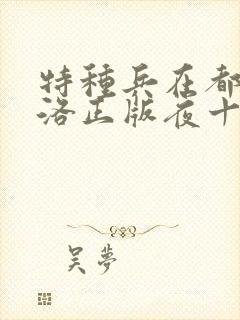 特種兵在都
洛正版夜十
吴夢